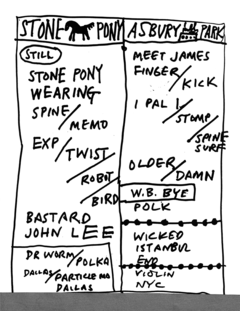 STONE PONY
STILL
STONE PONY
WEARING
SPINE/
MEMO
EXP/
TWIST/
ROBOT/
BIRD
BASTARD
JOHN LEE
DR WORM/POLKA
DALLAS/PARTICLE MA
DALLAS
ASBURY PARK
MEET JAMES
FINGER/
KICK
1 PAL 1/
STOMP/
SPINE
SURF
OLDER/
DAMN
W.B. BYE
POLK
WICKED
ISTANBUL
END
VIOLIN
NYC